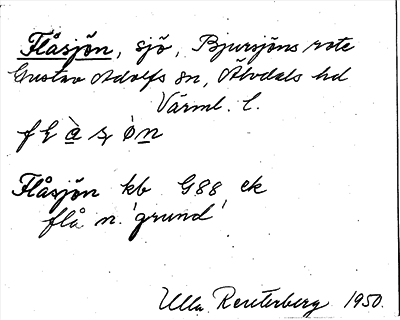 Flåsjön, sjö, Bjursjöns rote
Gustav Adolfs sn, Älvdals hd
Värml. l.
Flåsjön kb G88 ek
flå n. 'grund'
Ulla Reuterberg 1950.